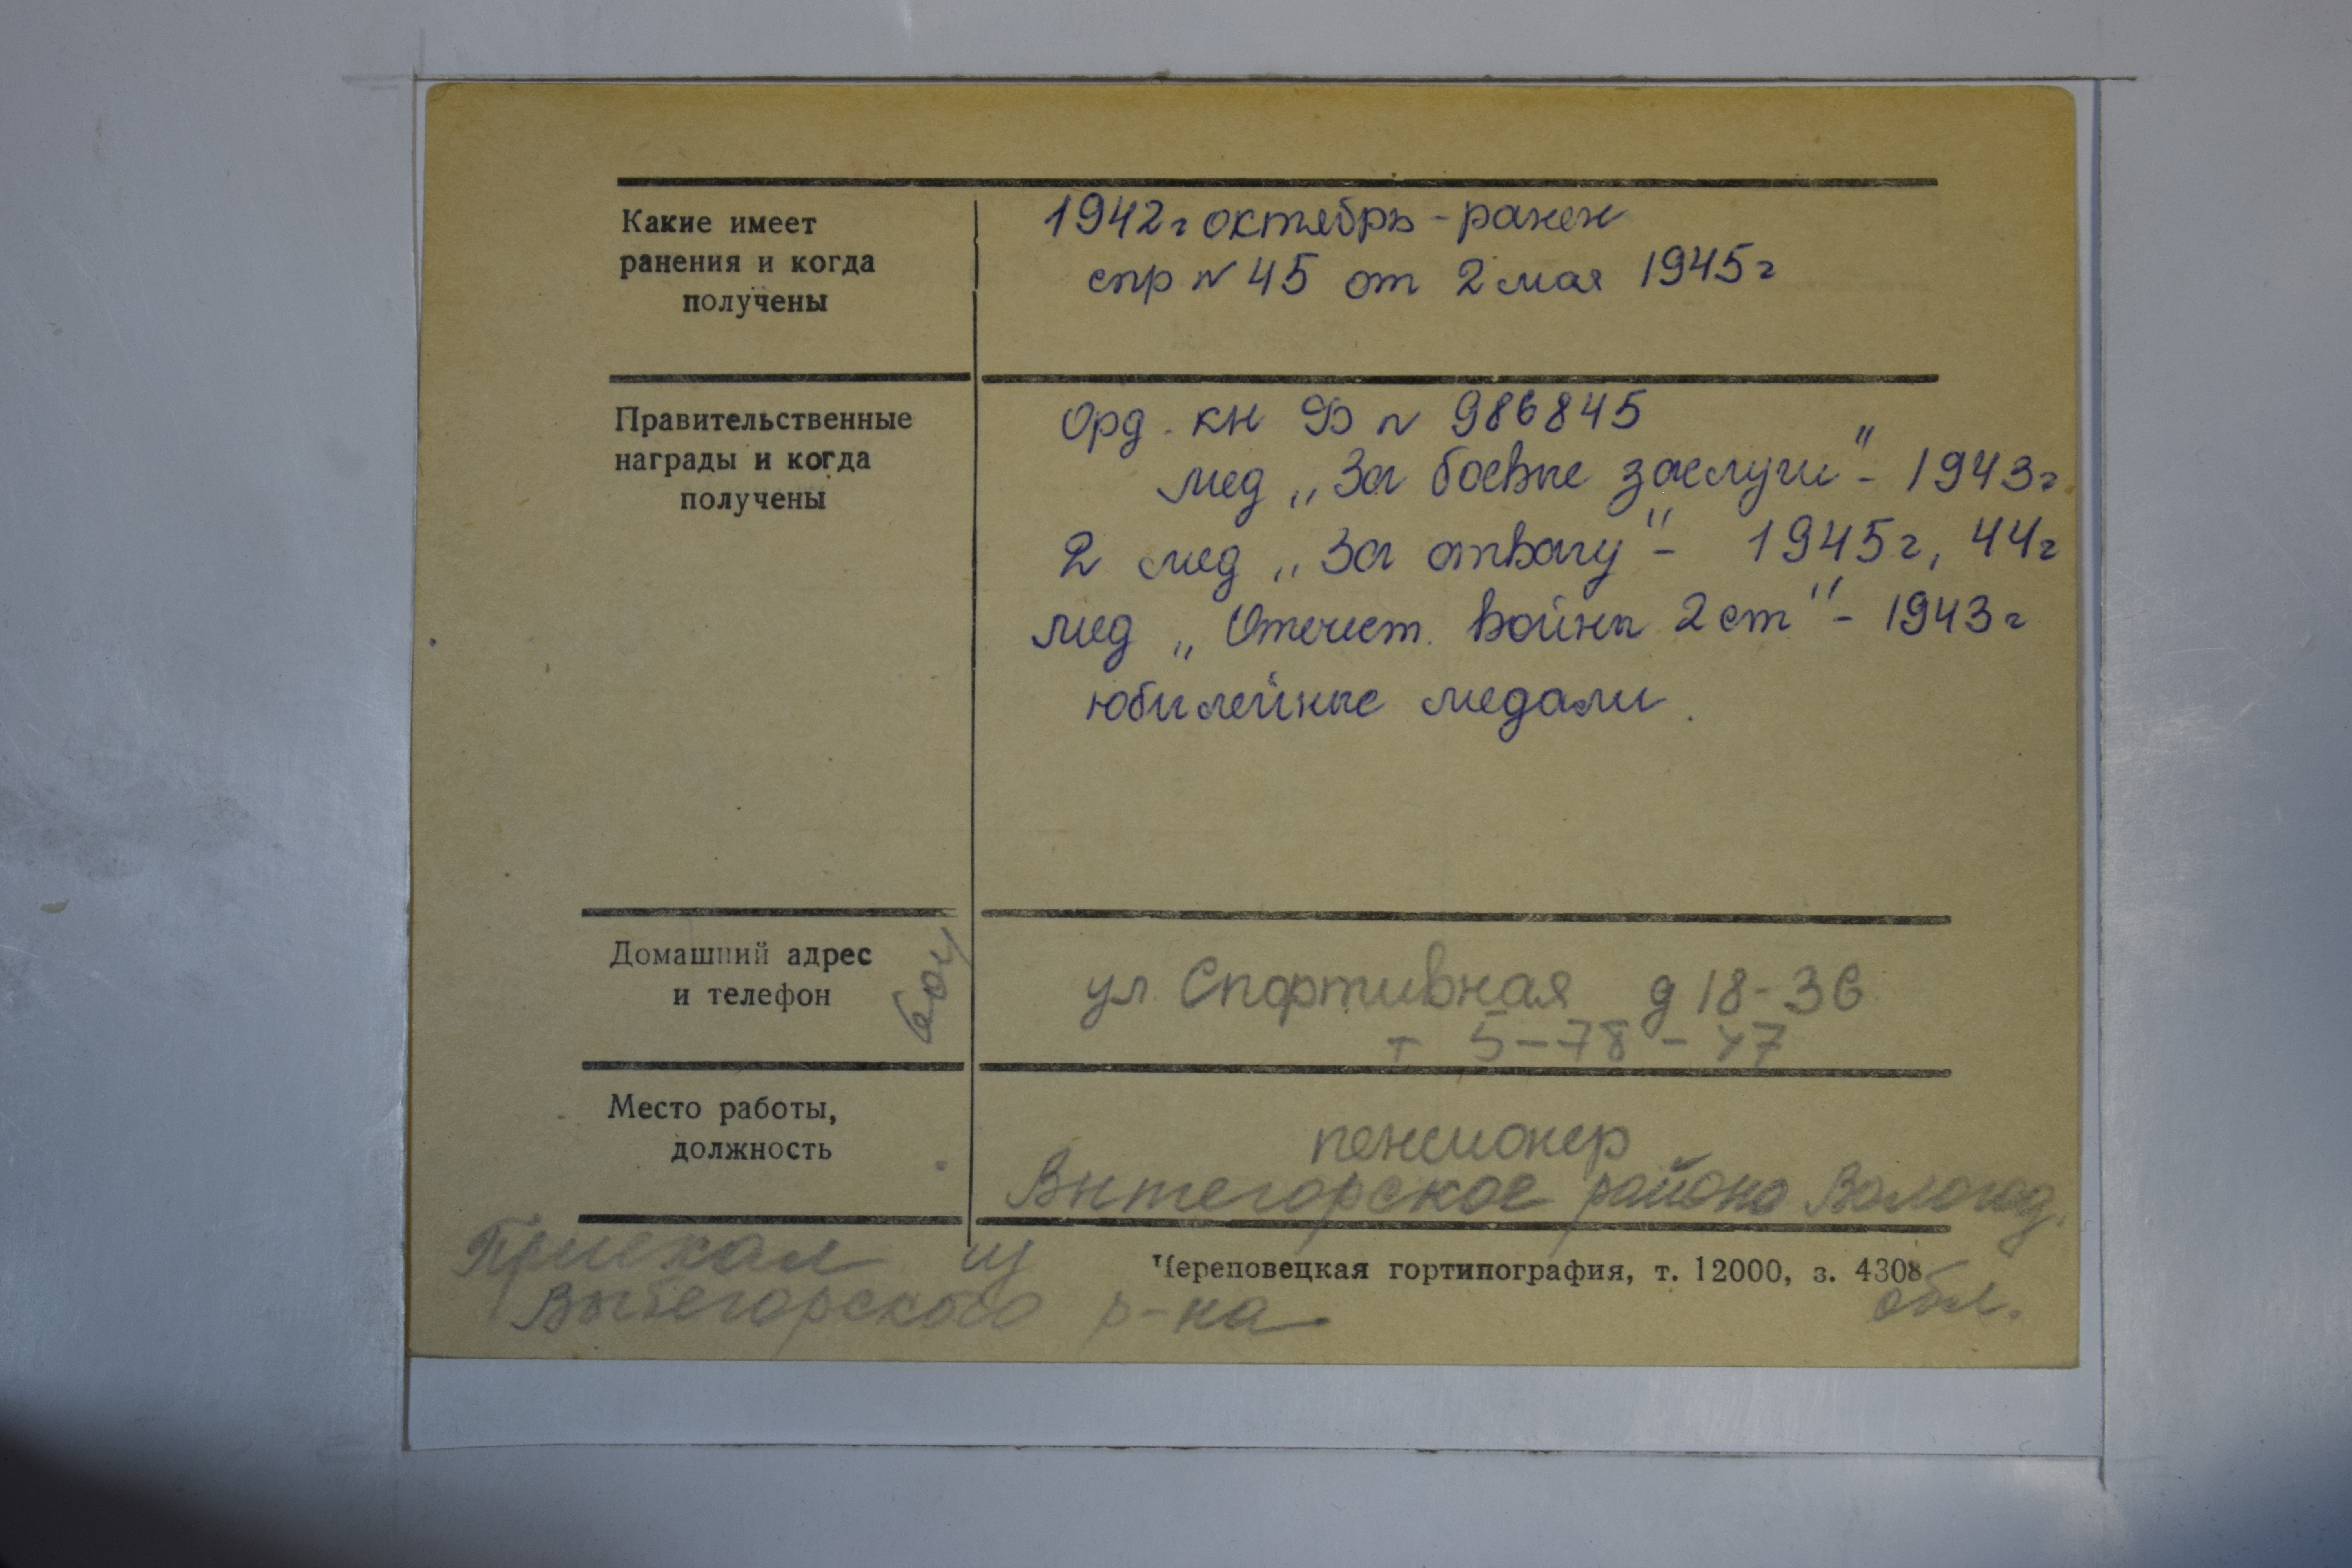 Какие имеет
ранения и когда
получены
1942г октябрь - ранен
спр N 45 от 2 мая 1945г
Правительственные
награды и когда
получены
Орд. кн Ф N 986845
мед „За боевые заслуги" - 1943г
2 мед „За отвагу" - 1945г, 44г
мед „Отечест. войны 2 ст" - 1943г
юбилейные медали.
Домашний адрес
и телефон
ул. Спортивная д 18-36
т 5-78-47
Место работы,
должность
пенсионер
Вытегорское района Вологод.
обл.
Приехал из
Вытегорского р-на
Череповецкая гортипография, т. 12000, з. 4308